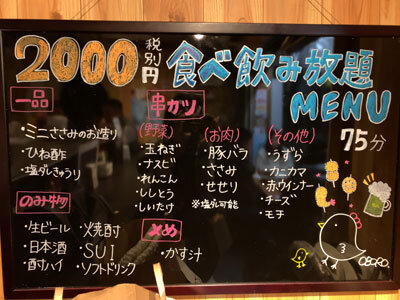 2000円 税別 食べ飲み放題
MENU
75分
一品
・ミニささみのお造り
・ひね酢
・塩ダレきゅうり
串カツ
(野菜)
・玉ねぎ
・ナスビ
・れんこん
・ししとう
・しいたけ
(お肉)
・豚バラ
・ささみ
・せせり
※塩ダレ可能
(その他)
・うずら
・カニカマ
・赤ウインナー
・チーズ
・モチ
のみ物
・生ビール
・日本酒
・酎ハイ
・焼酎
・SUI
・ソフトドリンク
〆め
・かす汁